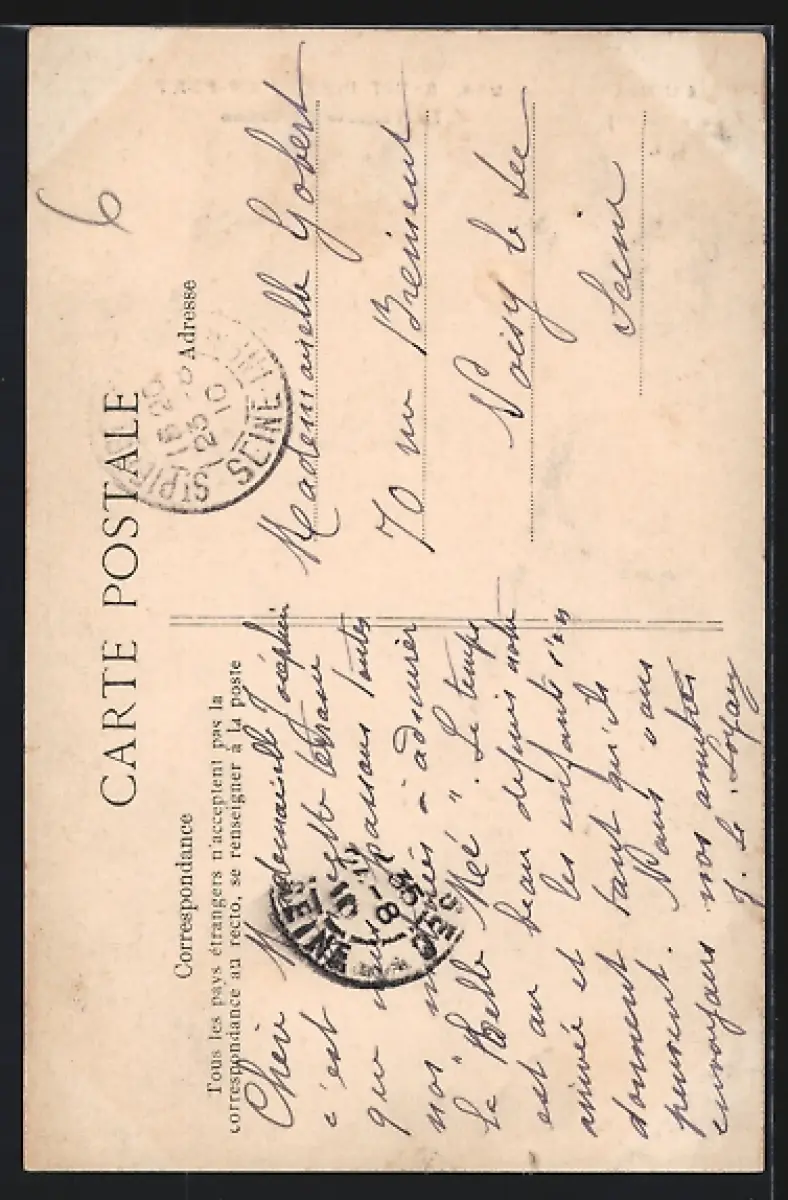 CARTE POSTALE
Correspondance
Tous les pays étrangers n'acceptent pas la
correspondance au recto, se renseigner à la poste
Adresse
6
Chère Mademoiselle Joséphine
c'est cette terrasse
que nous passons toutes
nos à admirer
la "Belle Mée". Le temps
est au beau depuis notre
arrivée et les enfants s'en
donnent tant qu'ils
peuvent. Nous vous
envoyons nos amitiés
J. Le
Mademoiselle Gobert
70 rue Brement
Noisy le Sec
Seine
ST PIE
15 20
25
10
SEINE INF
SEINE
10
8